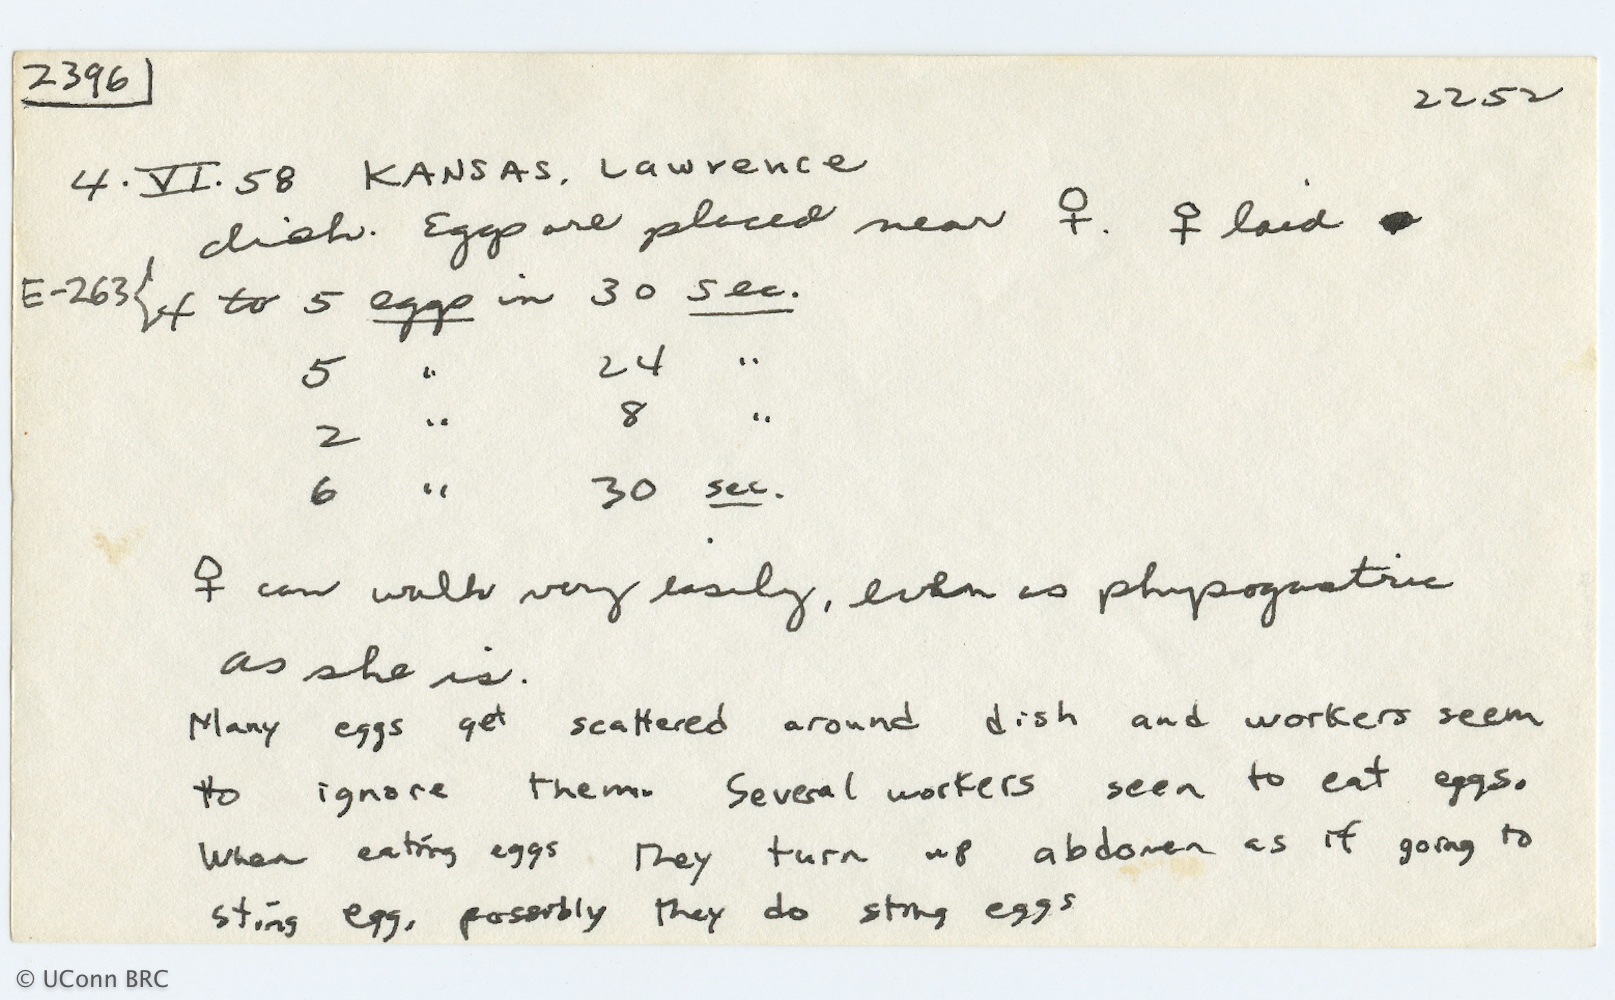 2396
2252
4.VI.58 KANSAS, Lawrence
dish. Eggs are placed near ♀. ♀ laid
E-263{ 4 to 5 eggs in 30 sec.
5 " 24 "
2 " 8 "
6 " 30 sec.
♀ can walk very easily, even as physogastric
as she is.
Many eggs get scattered around dish and workers seem
to ignore them. Several workers seen to eat eggs.
When eating eggs they turn up abdomen as if going to
sting egg, possibly they do sting eggs
© UConn BRC